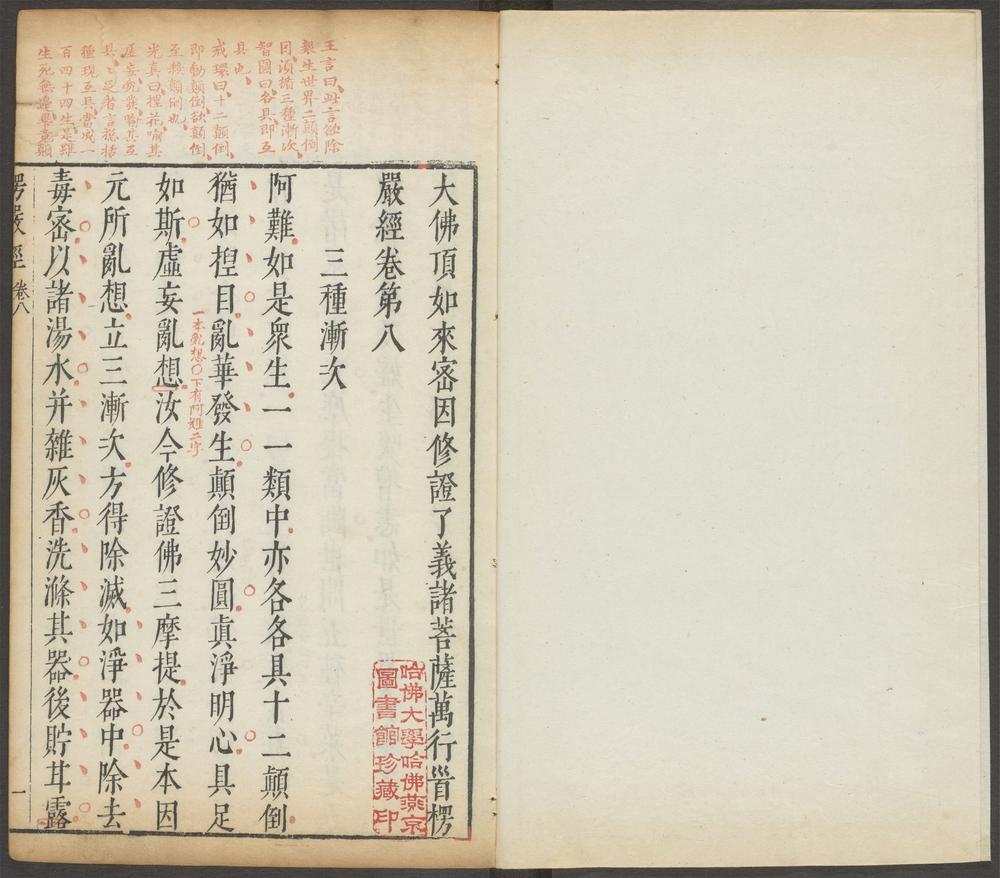 王言曰此言欲除
衆生世界二顛倒
因須搆三種漸次
智圓曰各具即互
具也
戒環曰十二顛倒
即動顛倒欲顛倒
至殺顛倒也
光真曰捏花喻其
虛妄亂發喻其互
具〻足者言揔括
種現互具當成一
百四十四生是雖
生死無邊舉意顛
大佛頂如來宻因修證了義諸菩薩萬行首楞
嚴經卷第八
三種漸次
阿難如是衆生一一類中亦各各具十二顛倒
猶如捏目亂華發生顛倒妙圓眞淨明心具足
如斯虛妄亂想汝今修證佛三摩提於是本因
一本亂想〇下有阿難二字
元所亂想立三漸次方得除滅如淨器中除去
毒宻以諸湯水并雜灰香洗滌其器後貯甘露
楞嚴經 卷八 一
哈佛大學哈佛燕京
圖書館珍藏印